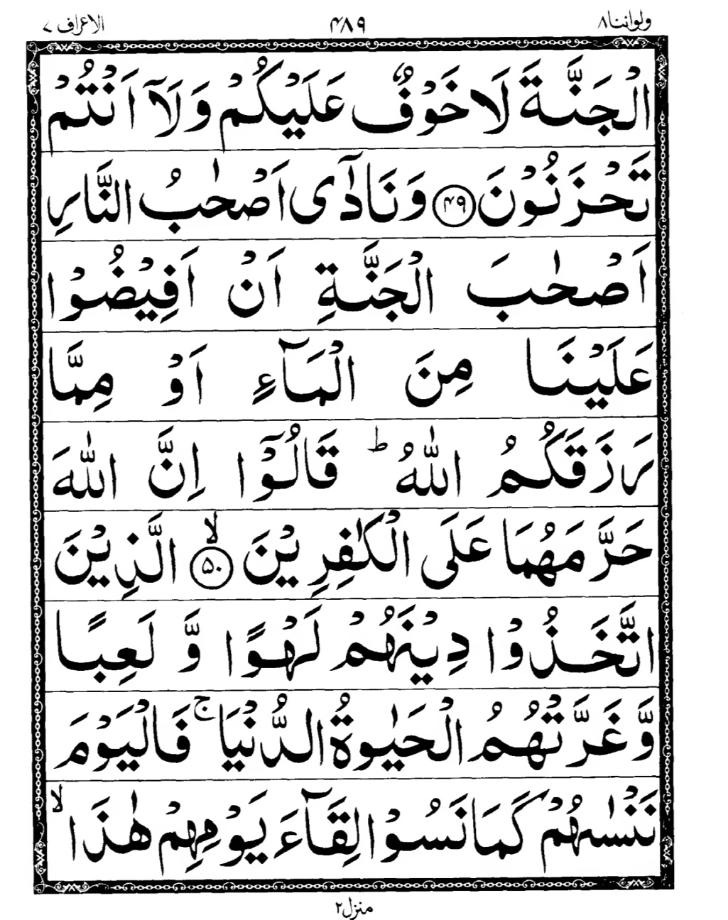 ولواننا ٨ ۴۸۹ الاعراف ۷
الْجَنَّةَ لَا خَوْفٌ عَلَيْكُمْ وَلَآ اَنْتُمْ
تَحْزَنُوْنَ ﴿۴۹﴾ وَنَادٰٓى اَصْحٰبُ النَّارِ
اَصْحٰبَ الْجَنَّةِ اَنْ اَفِيْضُوْا
عَلَيْنَا مِنَ الْمَآءِ اَوْ مِمَّا
رَزَقَكُمُ اللّٰهُ ؕ قَالُوْٓا اِنَّ اللّٰهَ
حَرَّمَهُمَا عَلَى الْكٰفِرِيْنَ ﴿۵۰﴾ۙ الَّذِيْنَ
اتَّخَذُوْا دِيْنَهُمْ لَهْوًا وَّ لَعِبًا
وَّغَرَّتْهُمُ الْحَيٰوةُ الدُّنْيَا ۚ فَالْيَوْمَ
نَنْسٰىهُمْ كَمَا نَسُوْا لِقَآءَ يَوْمِهِمْ هٰذَا ۙ
منزل ۲